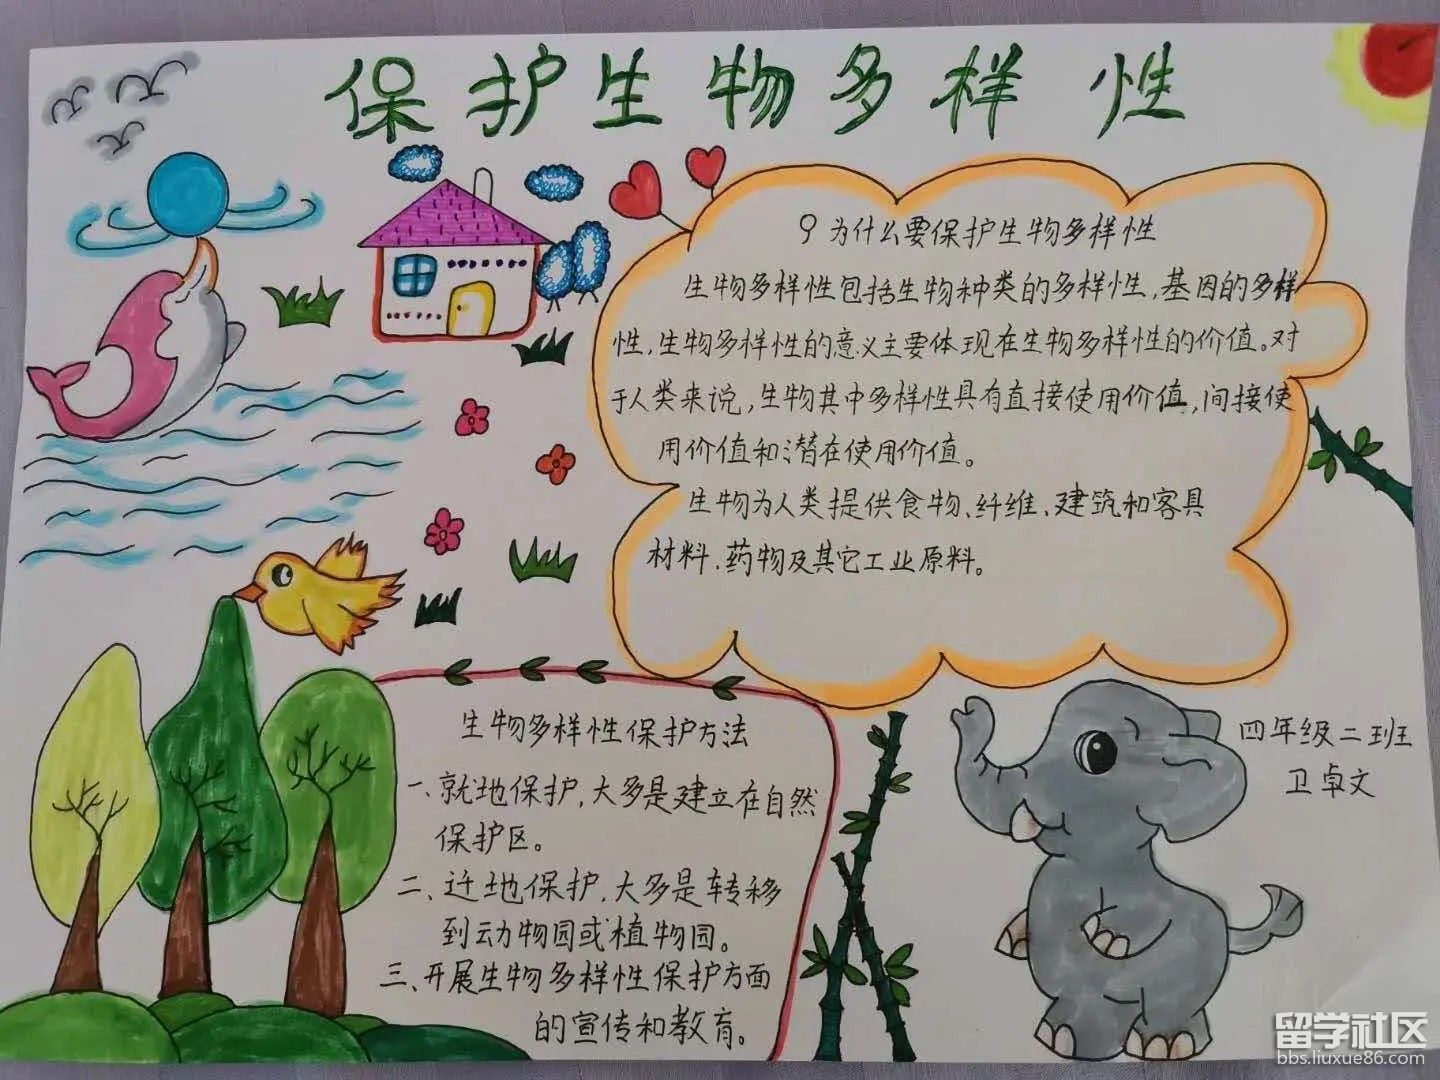 保护生物多样性
为什么要保护生物多样性
生物多样性包括生物种类的多样性,基因的多样
性,生物多样性的意义主要体现在生物多样性的价值。对
于人类来说,生物其中多样性具有直接使用价值,间接使
用价值和潜在使用价值。
生物为人类提供食物、纤维、建筑和客具
材料、药物及其它工业原料。
生物多样性保护方法
一、就地保护,大多是建立在自然
保护区。
二、迁地保护,大多是转移
到动物园或植物园。
三、开展生物多样性保护方面
的宣传和教育。
四年级二班
卫卓文
留学社区
bbs.liuxue86.com